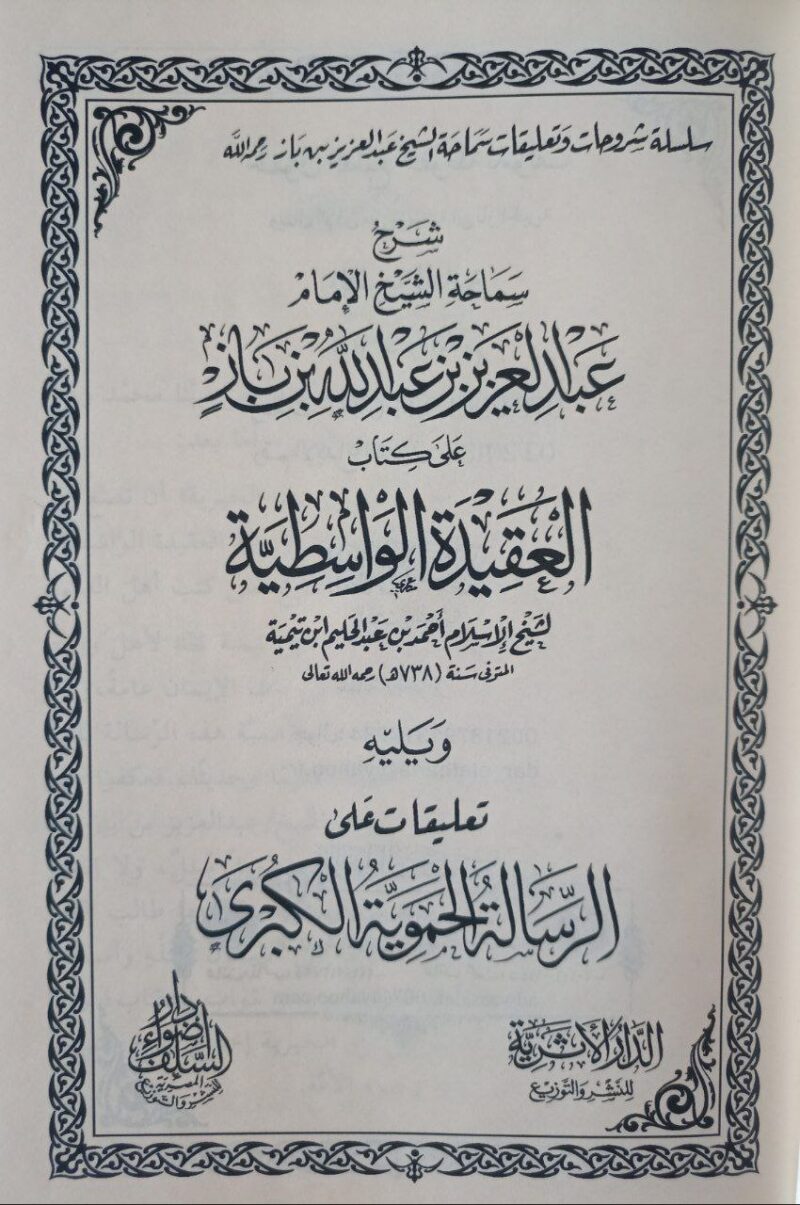 سلسلة شروحات وتعليقات سماحة الشيخ عبد العزيز بن باز رحمه الله
شَرْحُ
سَمَاحَةِ الشَّيْخِ الإِمَامِ
عَبْدِ الْعَزِيزِ بْنِ عَبْدِ اللَّهِ بْنِ بَازٍ
عَلَى كِتَابِ
الْعَقِيدَةِ الْوَاسِطِيَّةِ
لشيخ الإسلام أحمد بن عبد الحليم ابن تيمية
المتوفى سنة (٧٣٨هـ) رحمه الله تعالى
وَيَلِيهِ
تعليقات على
الرِّسَالَةُ الْحَمَوِيَّةُ الْكُبْرَى
الدار الأثرية
للنشر والتوزيع
دار أضواء السلف
المصرية
للنشر والتوزيع